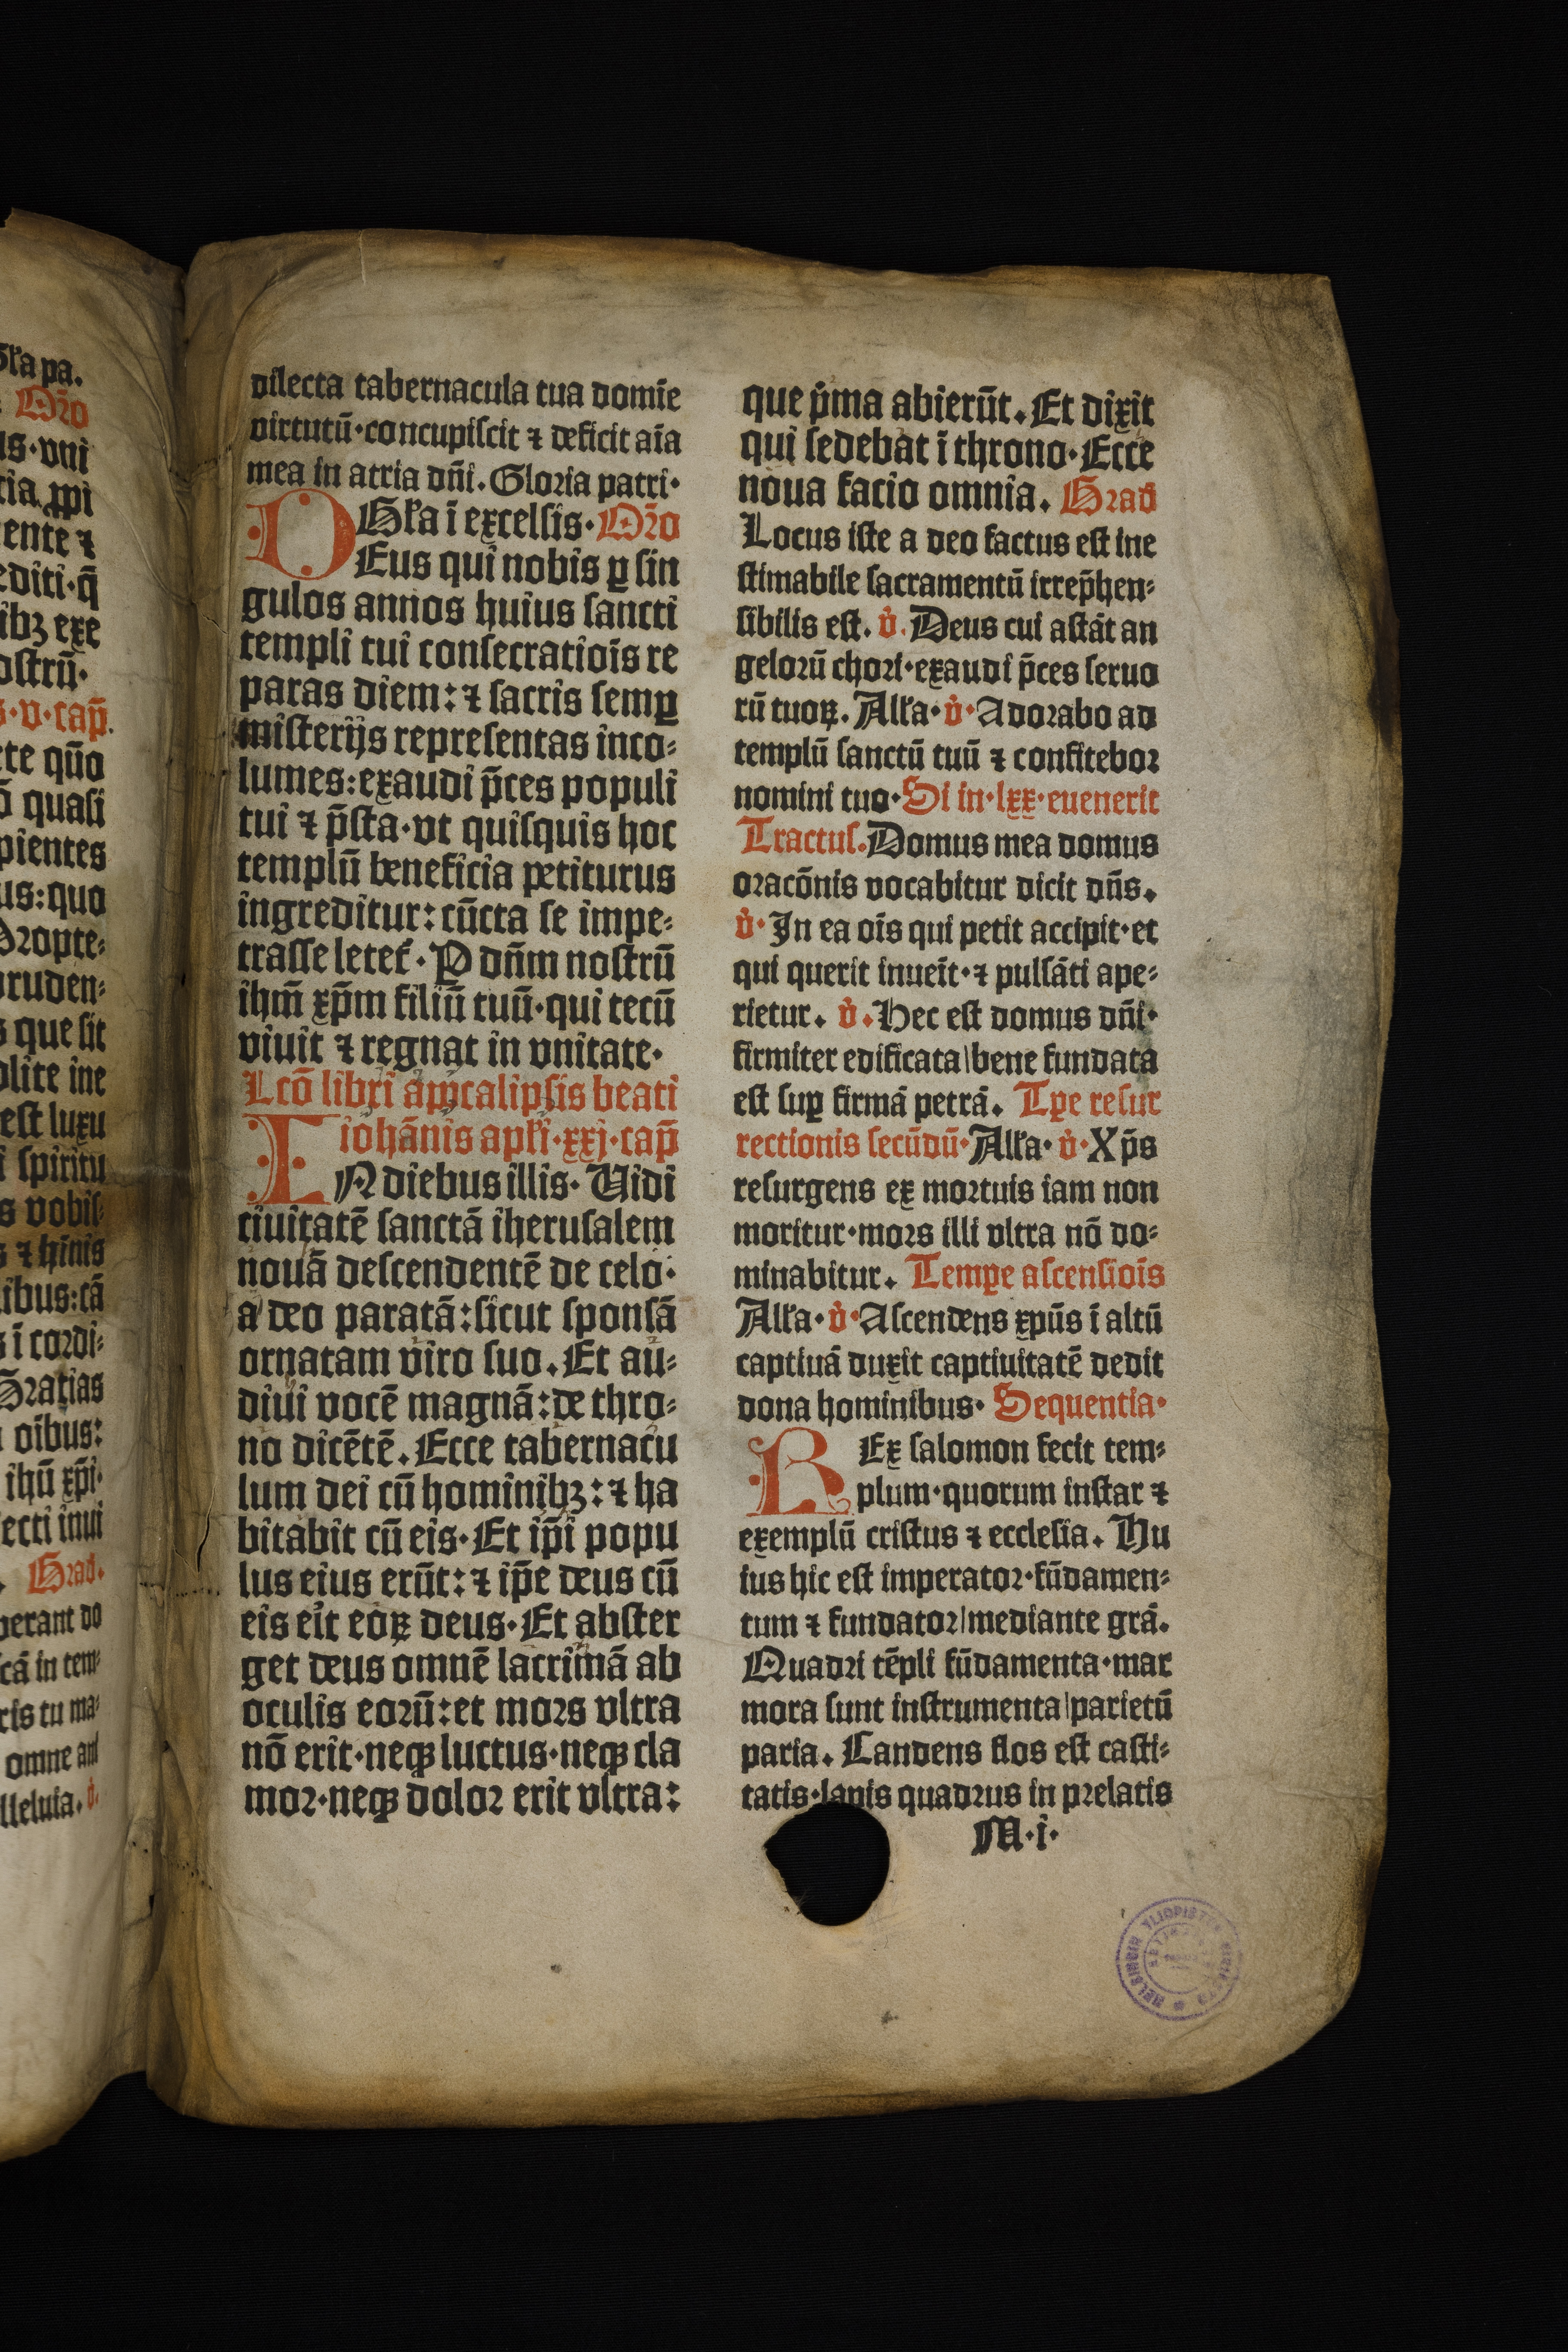 Gľa pa.
Oŕo
us·vni
cia ꝓpi
ente ⁊
editi·q̄
ibꝫ exe
ostrū·
s·v·cap̄.
cte qn̄o
ō quasi
pientes
us:quo
Propte⸗
pruden⸗
s que sit
olite ine
est luxu
i spiritu
s vobis⸗
s ⁊ hīnis
ibus:cā
s ī cordi⸗
Gratias
oībus:
ihū xp̄i·
ecti inui
Grad·
perant do
cā in tem⸗
ris tu ma⸗
omne aui
lleluia. v̇·
dilecta tabernacula tua domīe
virtutū·concupiscit ⁊ deficit aīa
mea in atria dn̄i. Gloria patri·
Gľa ī excelsis. Oŕo
DEus qui nobis ꝑ sin
gulos annos huius sancti
templi tui consecratiōis re
paras diem: ⁊ sacris semꝑ
misterijs representas inco⸗
lumes: exaudi p̄ces populi
tui ⁊ p̄sta·vt quisquis hoc
templū beneficia petiturus
ingreditur: cūcta se impe⸗
trasse leteť. P dn̄m nostrū
ihm̄ xp̄m filiū tuū·qui tecū
viuit ⁊ regnat in vnitate·
Lcō libri apocalipsis beati
iohānis apľi·xxj·cap̄
IN diebus illis. Uidi
ciuitatē sanctā iherusalem
nouā descendentē de celo·
a deo paratā: sicut sponsā
ornatam viro suo. Et au⸗
diui vocē magnā: de thro⸗
no dicētē. Ecce tabernacu
lum dei cū hominibꝫ: ⁊ ha
bitabit cū eis. Et ip̄i popu
lus eius erūt: ⁊ ip̄e deus cū
eis eit eoꝝ deus. Et abster
get deus omnē lacrimā ab
oculis eorū: et mors vltra
nō erit·neqꝫ luctus·neqꝫ cla
mor·neqꝫ dolor erit vltra:
que p̍ma abierūt. Et dixit
qui sedebat ī throno. Ecce
noua facio omnia. Grad
Locus iste a deo factus est ine
stimabile sacramentū irrep̄hen⸗
sibilis est. v̇. Deus cui astāt an
gelorū chori·exaudi p̄ces seruo
rū tuoꝝ. Alľa· v̇· Adorabo ad
templū sanctū tuū ⁊ confitebor
nomini tuo. Si in·lxx·euenerit
Tractus. Domus mea domus
oracōnis vocabitur dicit dn̄s.
v̇· In ea oīs qui petit accipit·et
qui querit inueīt·⁊ pulsāti ape⸗
rietur. v̇. Hec est domus dn̄i·
firmiter edificata|bene fundata
est suꝑ firmā petrā. Tꝑe resur
rectionis secūdū· Alľa· v̇· Xp̄s
resurgens ex mortuis iam non
moritur·mors illi vltra nō do⸗
minabitur. Tempe ascensiōis
Alľa· v̇· Ascendens xpūs ī altū
captiuā duxit captiuitatē dedit
dona hominibus. Sequentia·
REx salomon fecit tem⸗
plum·quorum instar ⁊
exemplū cristus ⁊ ecclesia. Hu
ius hic est imperator·fūdamen⸗
tum ⁊ fundator|mediante grā.
Quadri tēpli fūdamenta·mar
mora sunt instrumenta|parietū
paria. Candens flos est casti⸗
tatis·lapis quadrus in prelatis
M·i·